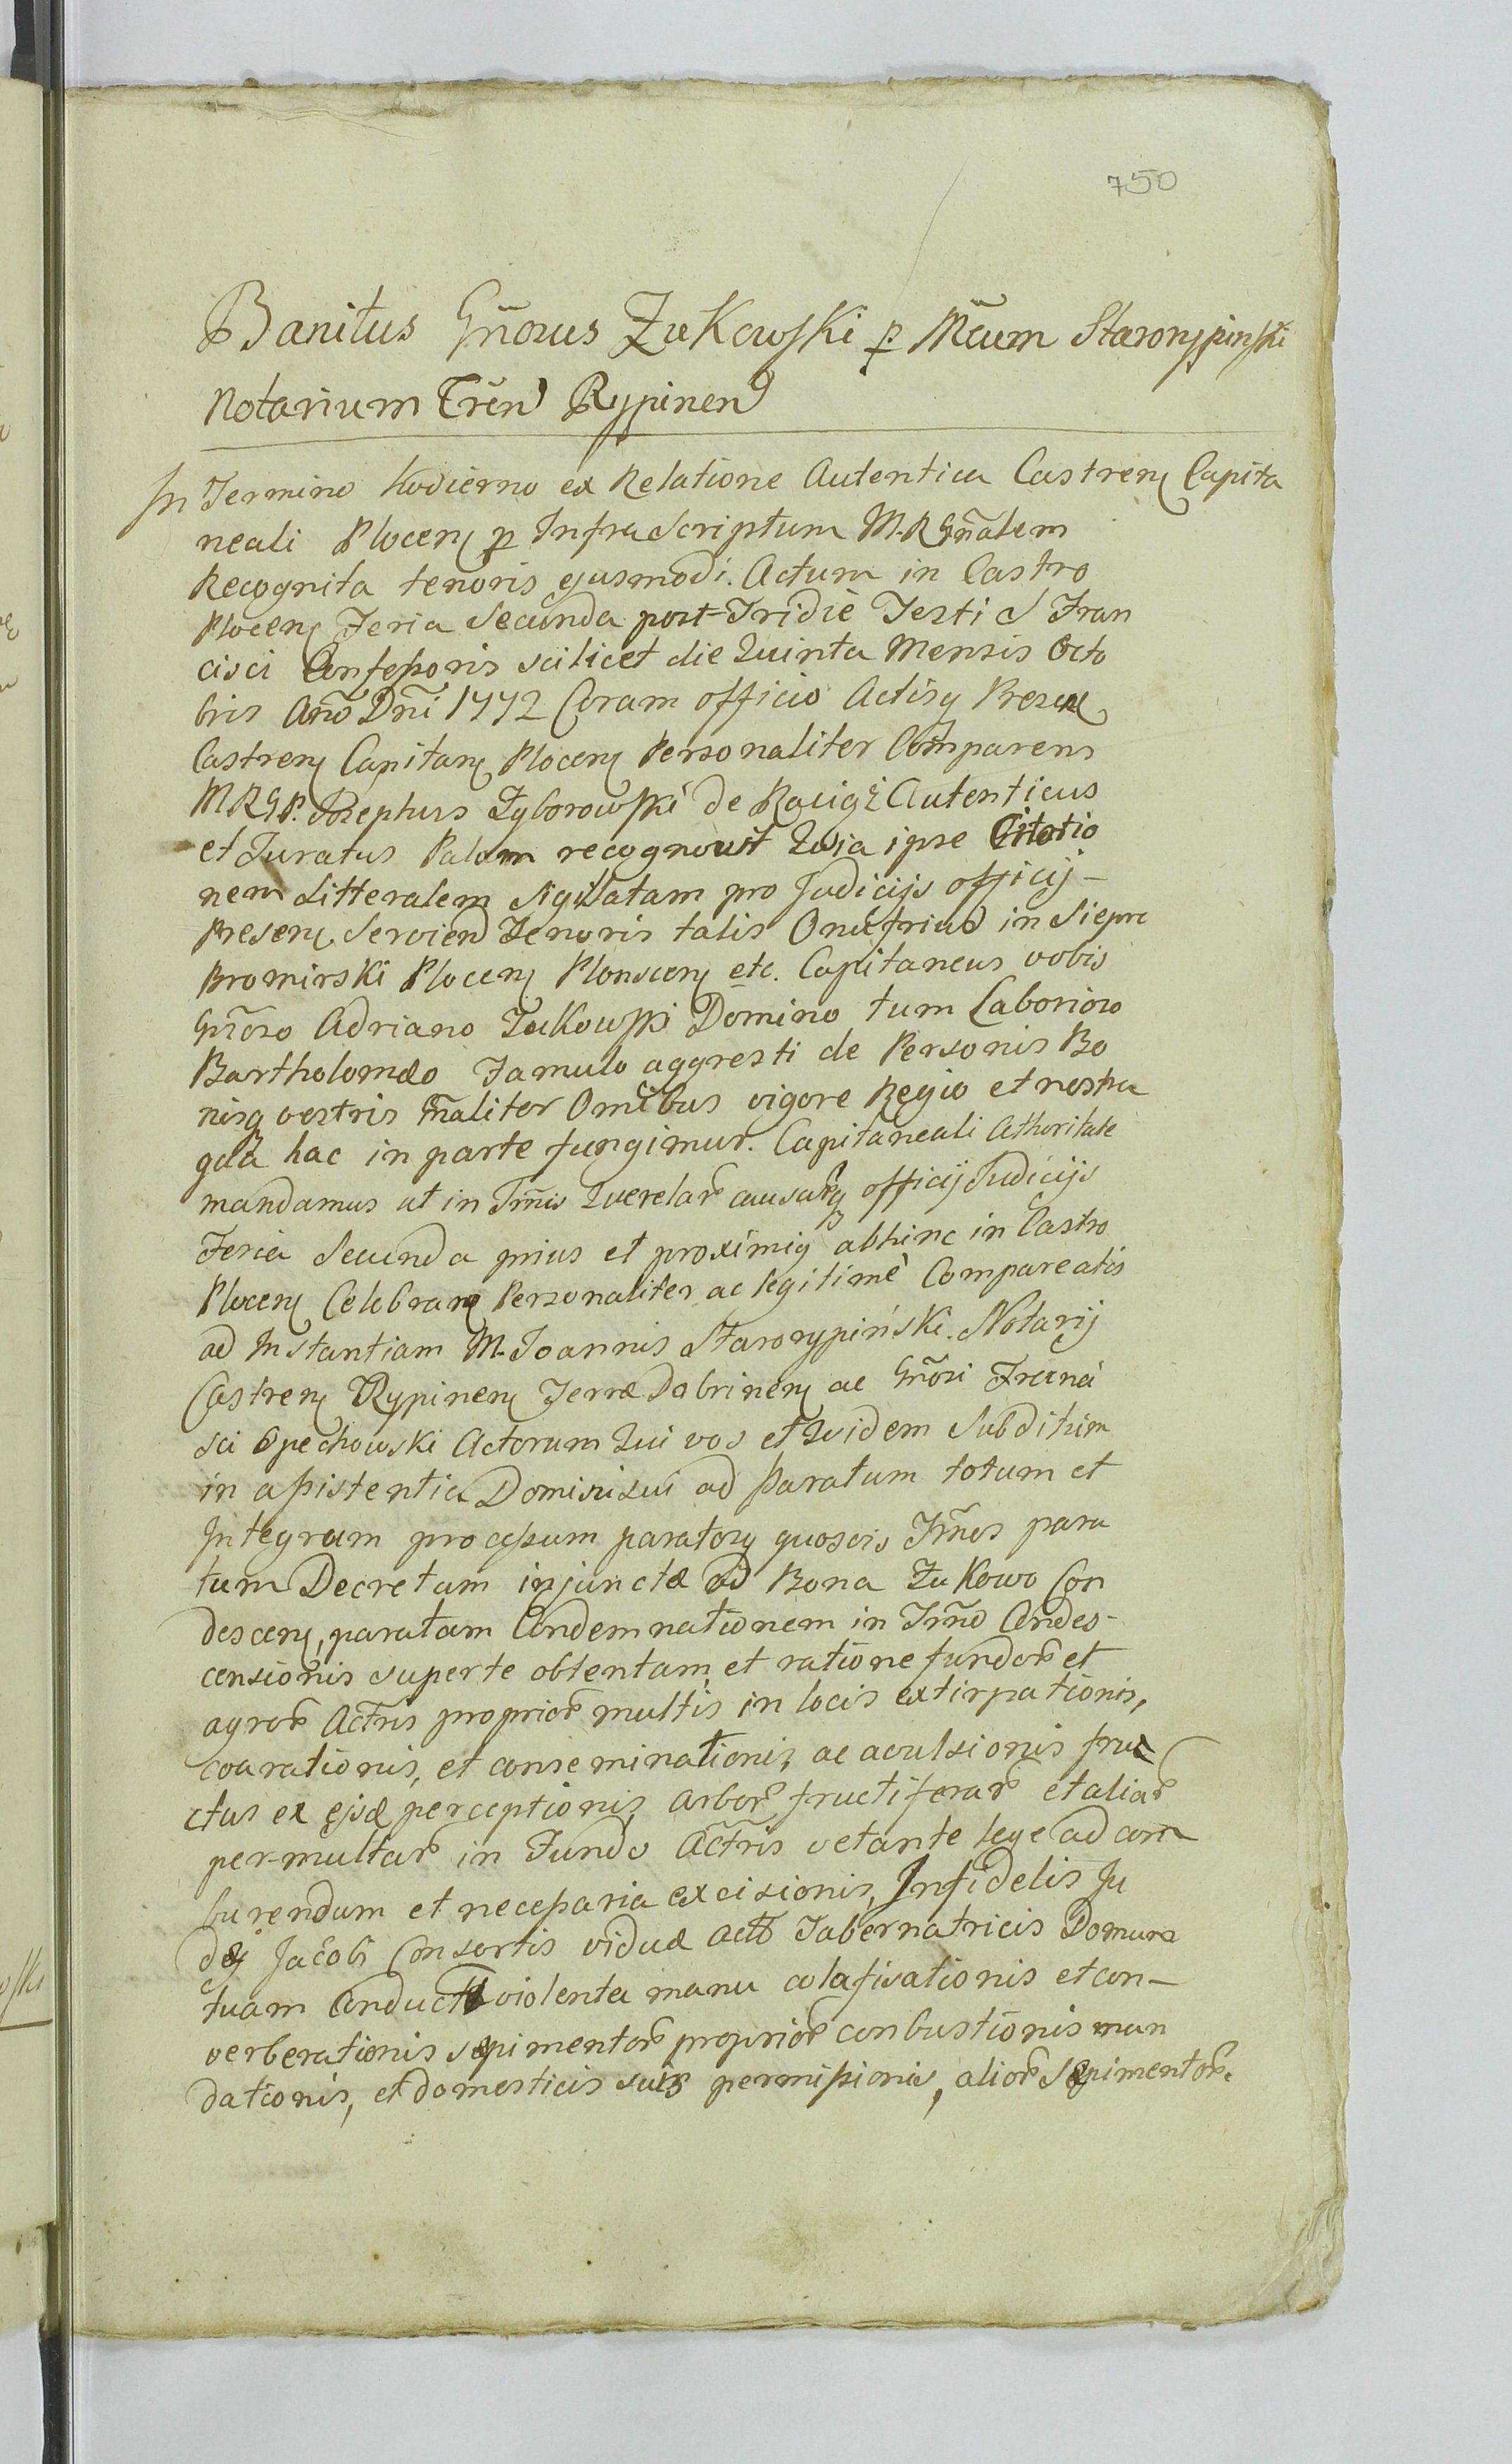 750
Banitus Gñosus Zukowski p Mcum Starorypinski
Notarium Tren Rypinen
In Termino hodierno ex Relatione Autentica Castren Capita
neali Plocen p Infrascriptum M.R Gñalem
Recognita tenoris ejusmodi. Actum in Castro
Plocen Feria Secunda post-Tridie Festi S Fran
cisci Confessoris scilicet die Quinta Mensis Octo
bris Año Dñi 1772 Coram officio Actisq Presen
Castren Capitan Plocen Personaliter Comparens
M R G P. Josephus Zyborowski de Raciąż Autenticus
et Juratus Palam recognovit Quia ipse Citatio
nem Litteralem Sigillatam pro Judicijs officij -
Presen. Servien Tenoris talis Onufrius in Siepre
Bromirski Plocen Plonscen etc. Capitaneus vobis
Gñoso Adriano Zukowski Domino tum Laborioso
Bartholomæo Famulo aggresti de Personis Bo
nisq vestris gñaliter Omibus vigore Regio et nostra
qua hac in parte fungimur. Capitaneali Athoritate
mandamus ut in Tmis Querelar causarq officij Judicijs
Feria Secunda prius et proximiq abhinc in Castro
Plocen Celebran Personaliter ac legitime Compareatis
ad Instantiam M. Joannis Starorypiński. Notarij
Castren Rypinen Terræ Dobrinen ac Gñosi Franci
sci Opechowski Actorum Qui vos et Quidem Subditum
in assistentia Domini sui ad Paratum totum et
Integrum processum paratosq quosvis Tmos para
tum Decretum injunctæ ad Bona Zukowo Con
descen, paratam Condemnationem in Tmo Condes-
censionis super te obtentam, et ratione fundor et
agror Actris proprior multis in locis extirpationis,
coarationis, et conseminationis, ac avulsionis fru
ctus ex ejsd perceptionis, arbor fructiferar et aliar
per-multar in Fundo Actris vetante lege ad com
burendum et necessaria excisionis, Infidelis Ju
dæi Jacobi Consortis viduæ Actt Tabernatricis Domum
tuam Conductt violenta manu colafisationis et con-
verberationis sæpimentor proprior conbustionis man
dationis, et domesticis suis permissionis, alior sæpimentor.